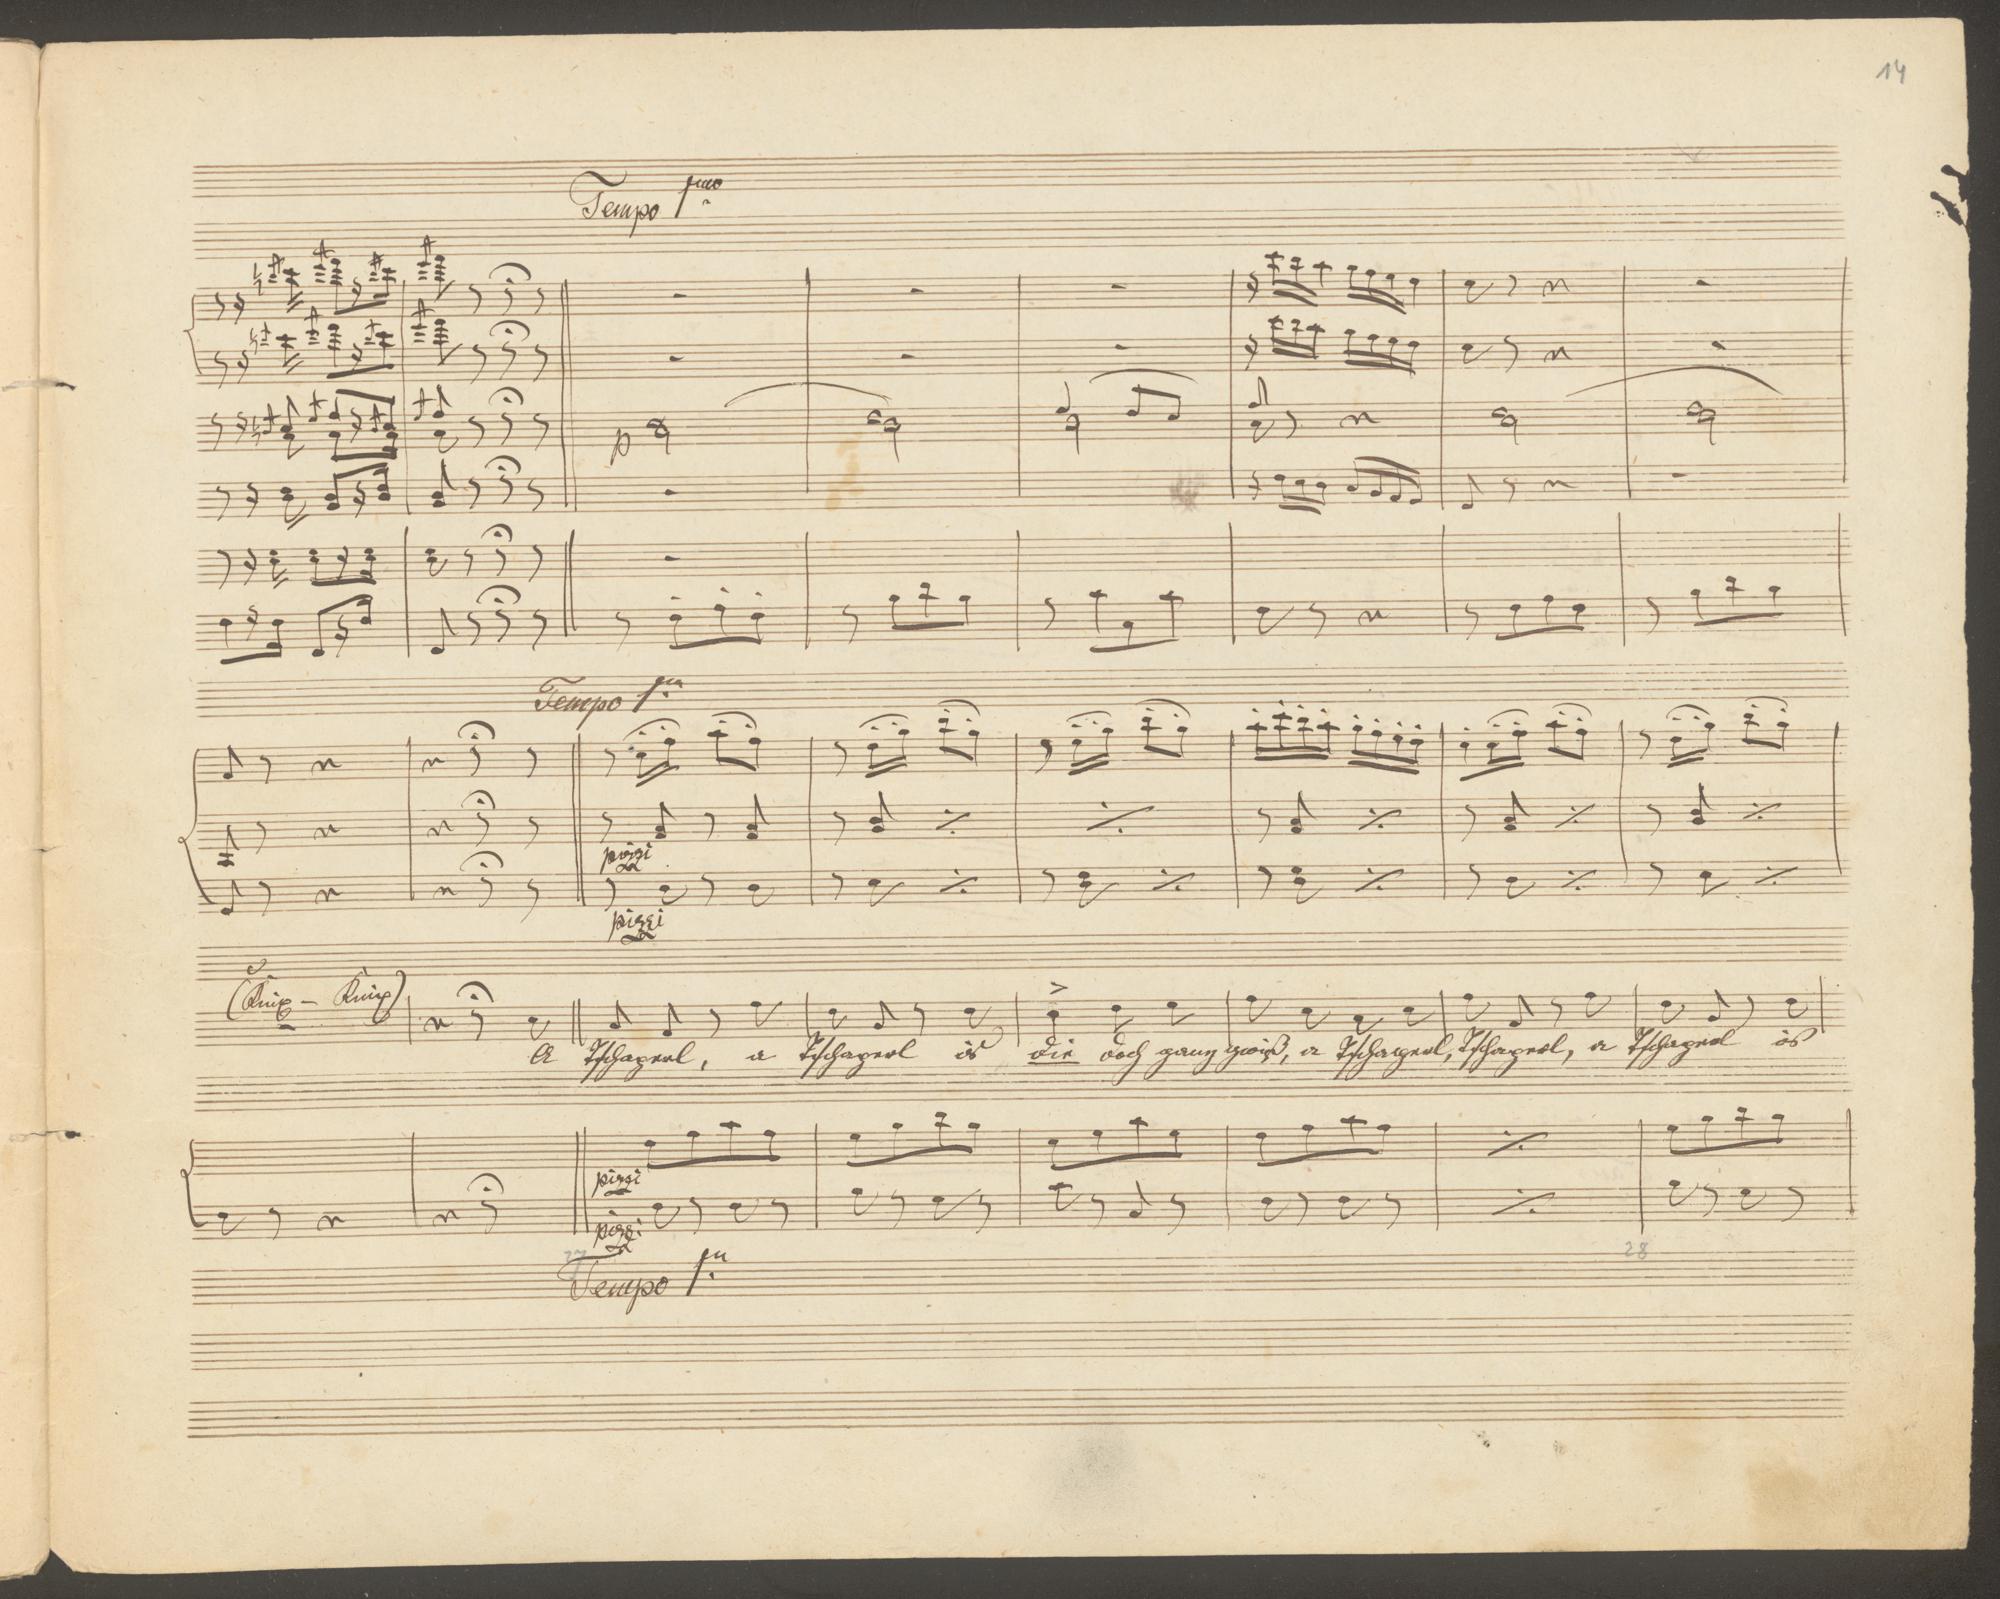 14
Tempo 1mo
p
Tempo 1mo
pizzi
pizzi
(Knix - Knix)
A Tschaperl, a Tschaperl is die doch ganz gwiß, a Tschaperl, Tschaperl, a Tschaperl is
pizzi
pizzi
27 28
Tempo 1mo